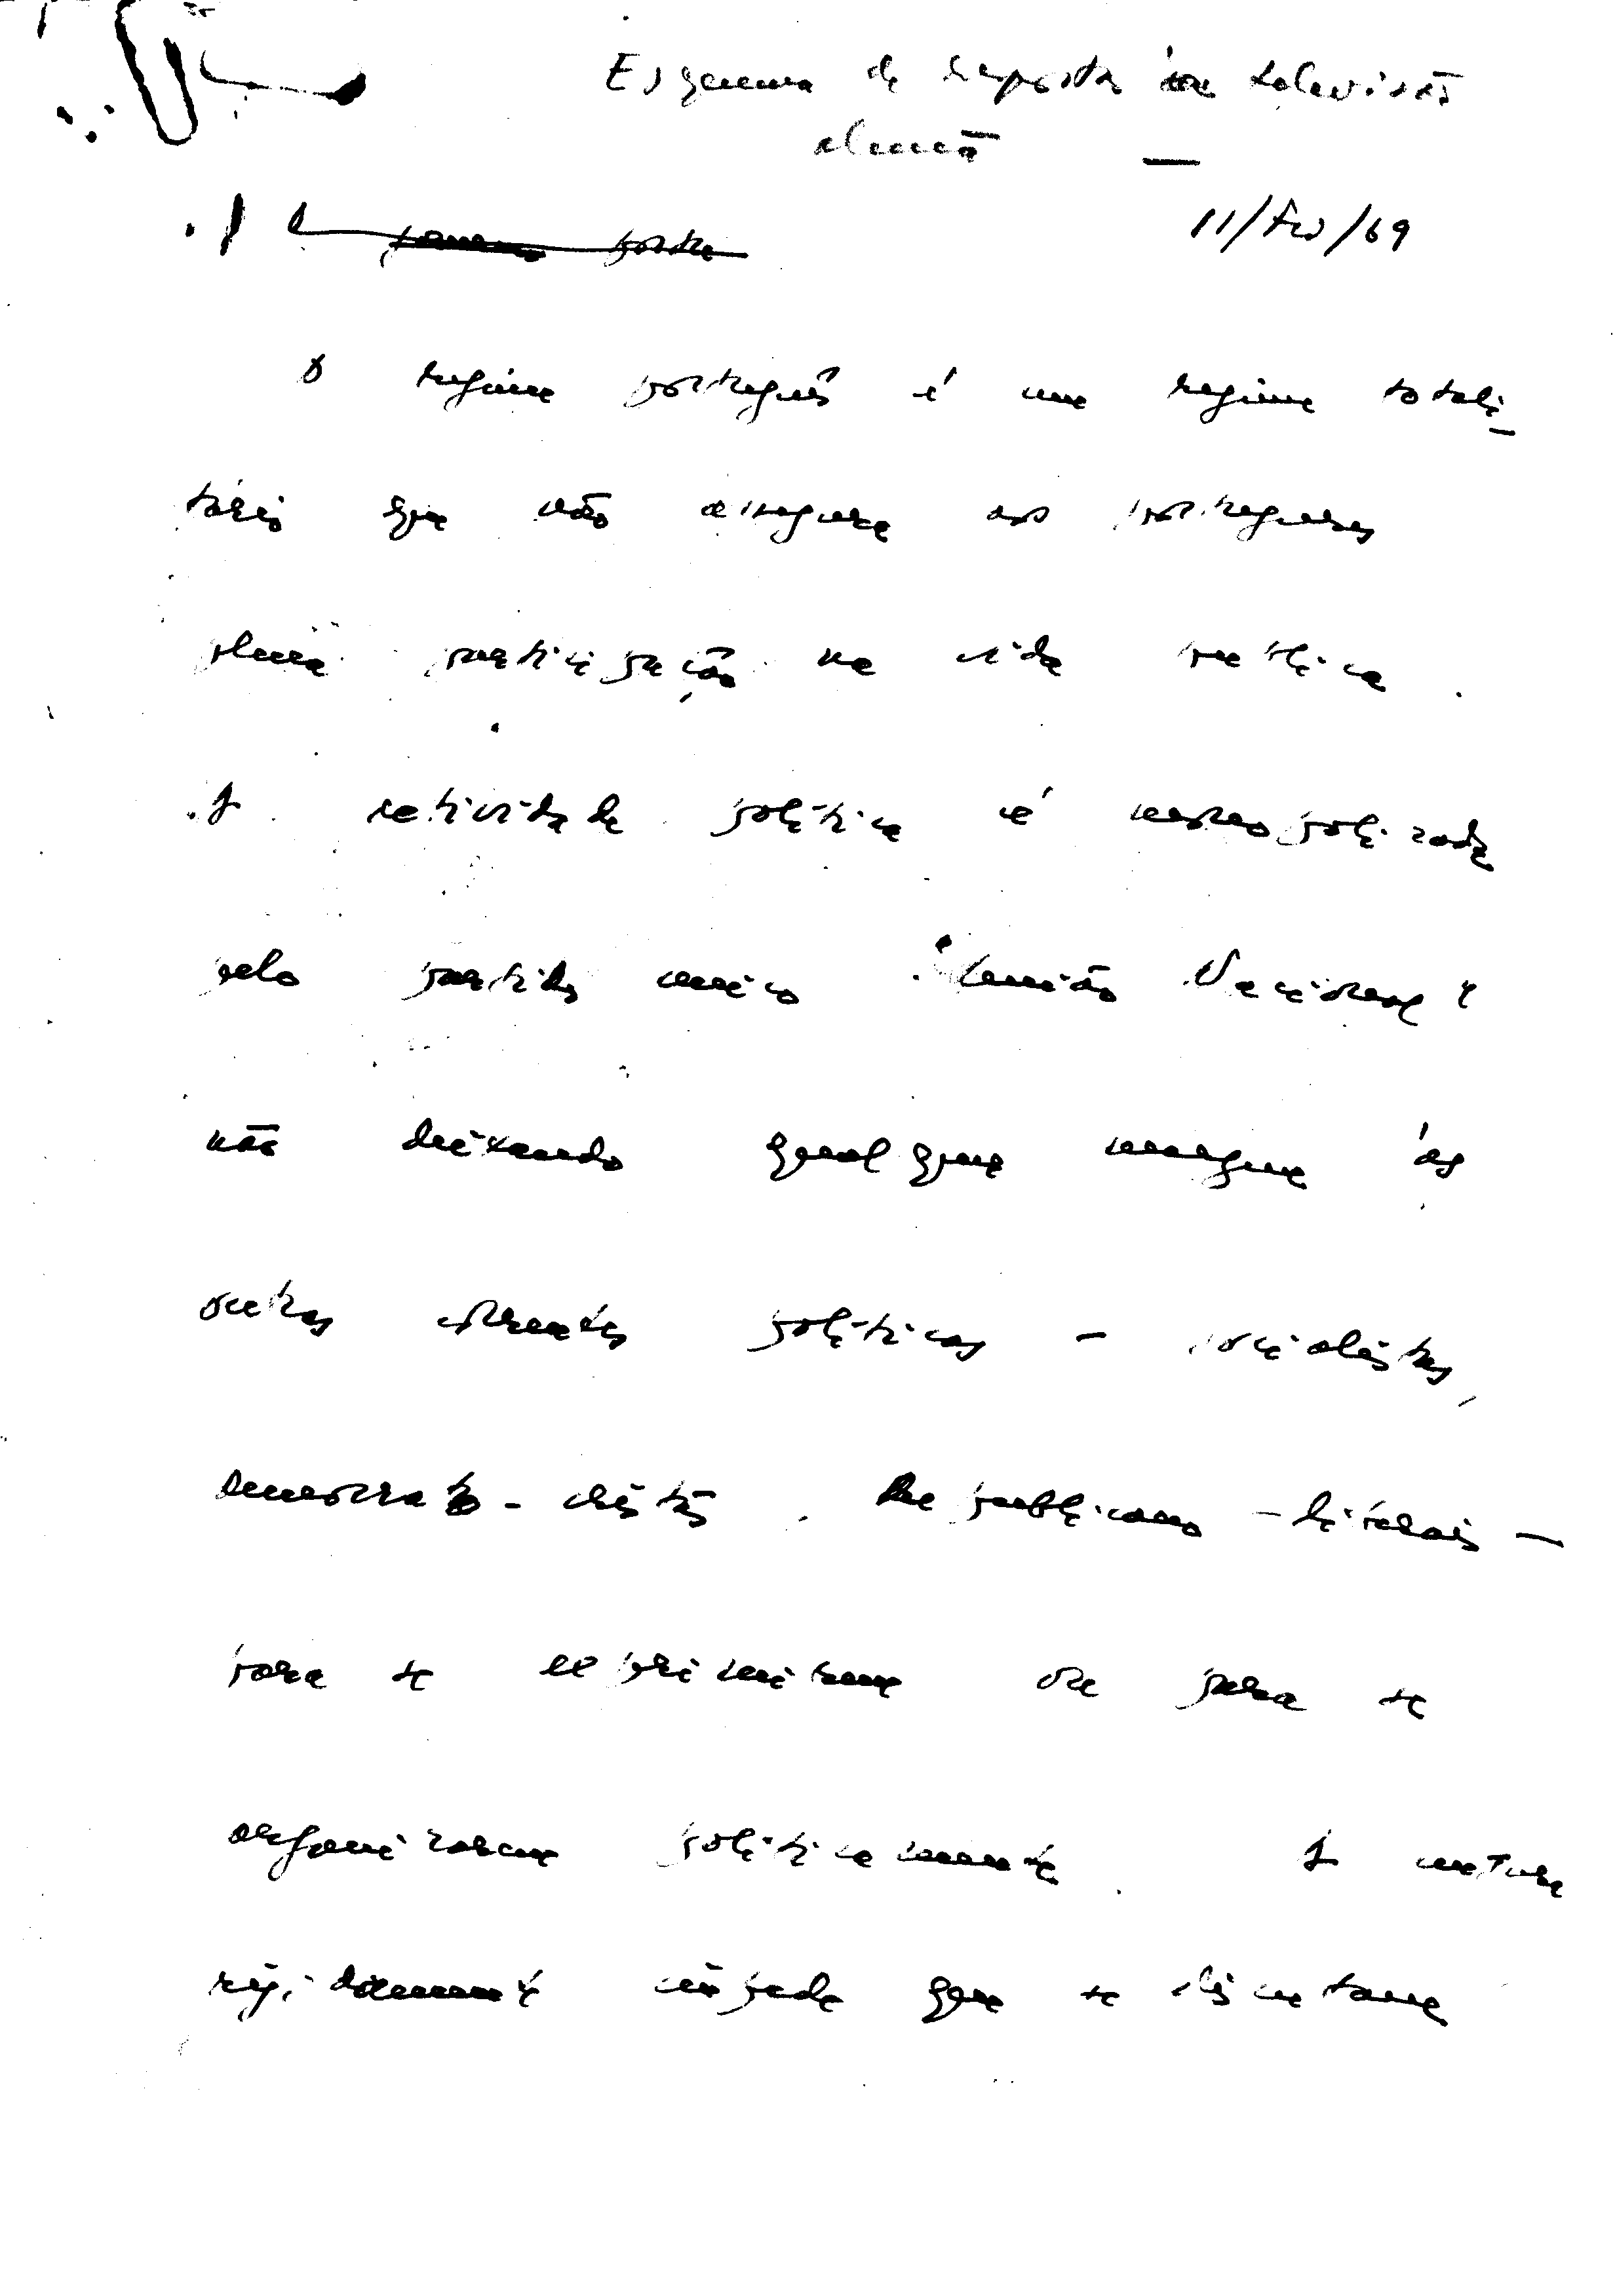 Esquema de resposta à televisão
alemã —
11/Fev/69
O regime português é um regime totali-
tário que não assegura aos portugueses
plena participação na vida pública.
A actividade política é monopolizada
pelo partido único "União Nacional"
não deixando qualquer margem às
outras correntes políticas – socialistas,
democrata-cristã, Republicano – liberais –
para se exprimirem ou para se
organizarem politicamente. A censura
rigidamente impede que se discutam